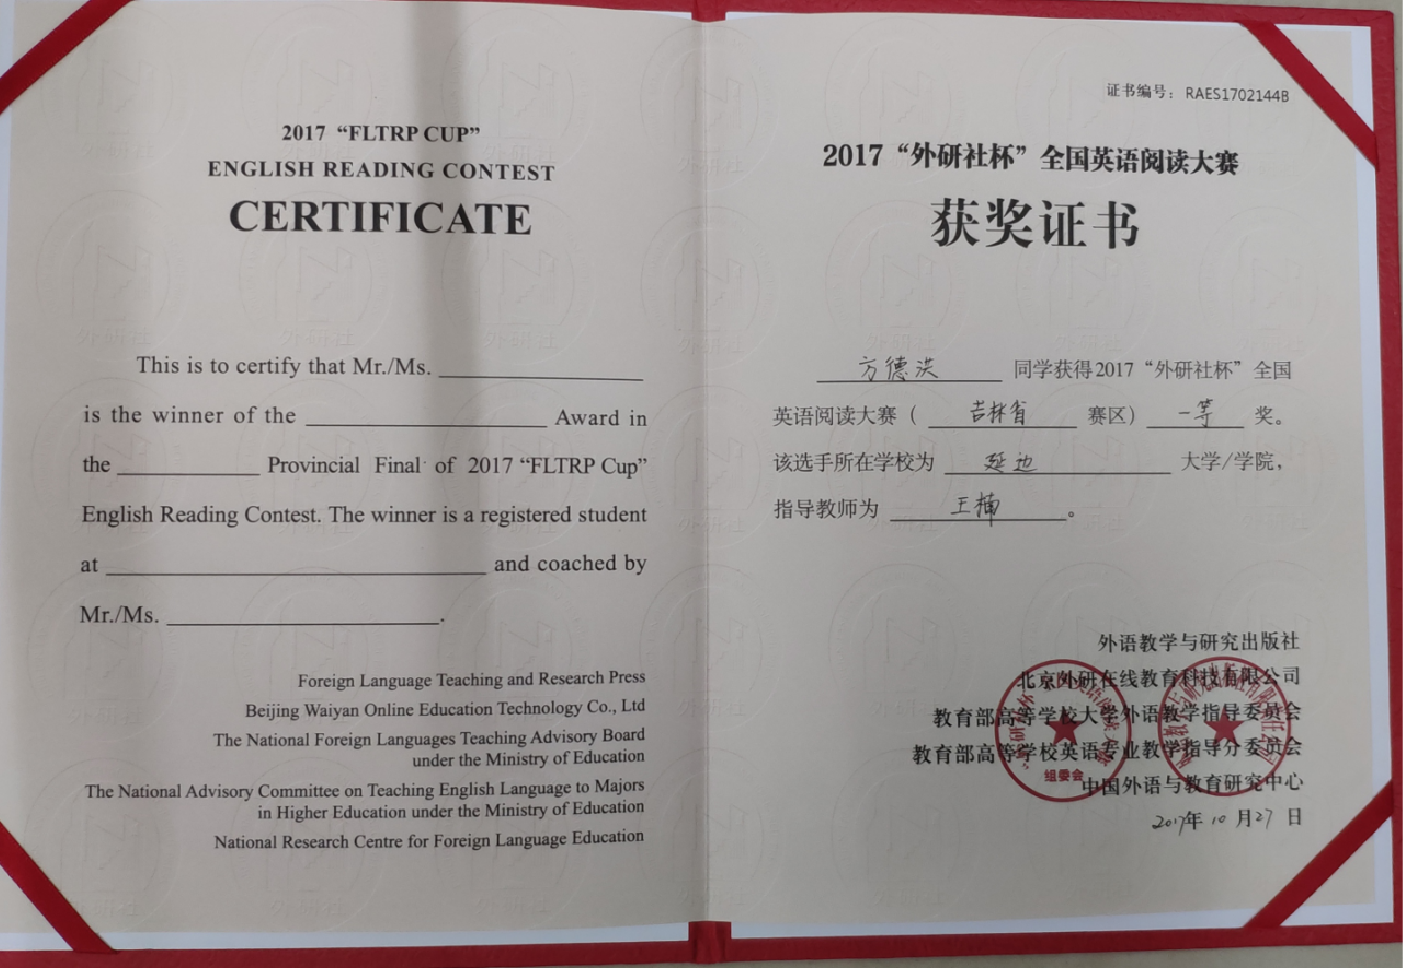 2017 “FLTRP CUP”
ENGLISH READING CONTEST
CERTIFICATE
This is to certify that Mr./Ms. ____________
is the winner of the ____________ Award in
the ____________ Provincial Final of 2017 “FLTRP Cup”
English Reading Contest. The winner is a registered student
at ____________ and coached by
Mr./Ms. ____________.
Foreign Language Teaching and Research Press
Beijing Waiyan Online Education Technology Co., Ltd
The National Foreign Languages Teaching Advisory Board
under the Ministry of Education
The National Advisory Committee on Teaching English Language to Majors
in Higher Education under the Ministry of Education
National Research Centre for Foreign Language Education
证书编号：RAES1702144B
2017“外研社杯”全国英语阅读大赛
获奖证书
方德洪 同学获得2017“外研社杯”全国
英语阅读大赛（ 吉林省 赛区）一等 奖。
该选手所在学校为 延边 大学/学院，
指导教师为 王楠 。
外语教学与研究出版社
北京外研在线教育科技有限公司
教育部高等学校大学外语教学指导委员会
教育部高等学校英语专业教学指导分委员会
中国外语与教育研究中心
2017年10月27日
组委会
外研社